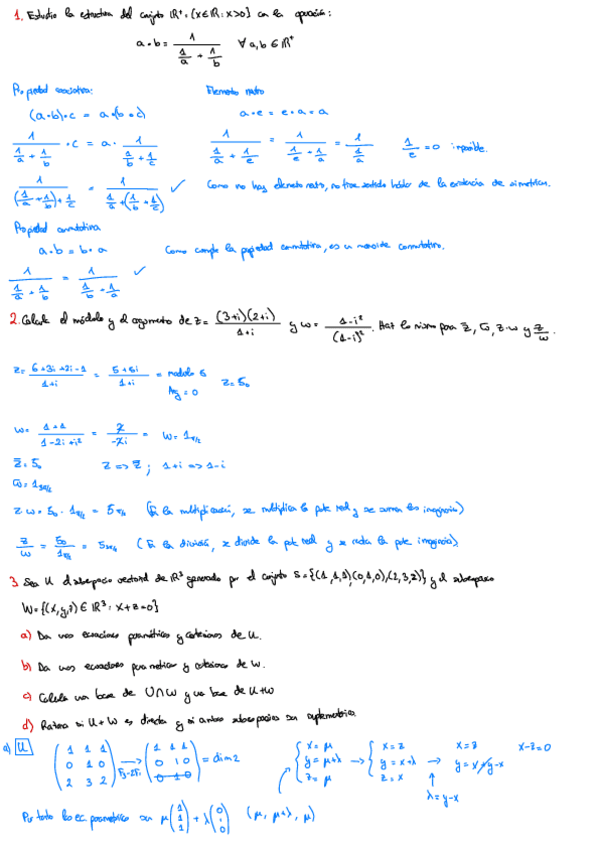 1. Estudia la estructura del conjunto ℝ⁺ = {x∈ℝ : x>0} con la operación:
a • b = 1/(1/a + 1/b) ∀ a,b ∈ ℝ⁺
Propiedad asociativa: Elemento neutro
(a•b)•c = a•(b•c) a•e = e•a = a
1/(1/a + 1/b) • c = a • 1/(1/b + 1/c) 1/(1/a + 1/e) = 1/(1/e + 1/a) = 1/(1/a) 1/e = 0 imposible.
1/((1/a + 1/b) + 1/c) = 1/(1/a + (1/b + 1/c)) ✓ Como no hay elemento neutro, no tiene sentido hablar de la existencia de simétricos.
Propiedad conmutativa
a•b = b•a Como cumple la propiedad conmutativa, es un monoide conmutativo.
1/(1/a + 1/b) = 1/(1/b + 1/a) ✓
2. Calcula el módulo y el argumento de z = (3+i)(2+i)/(1+i) y w = (1-i²)/(1-i)². Haz lo mismo para z̄, w̄, z·w y z/w.
z = (6+3i+2i-1)/(1+i) = (5+5i)/(1+i) = modulo 5
Arg = 0 z = 5₀
w = (1+1)/(1-2i+i²) = 2/(-2i) = w = 1_π/2
z̄ = 5₀ z => z̄ ; 1+i => 1-i
w̄ = 1_3π/2
z w = 5₀ · 1_π/2 = 5_π/2 (En la multiplicación, se multiplica la parte real y se suman las imaginarias)
z/w = 5₀/1_π/2 = 5_3π/2 (En la división, se divide la parte real y se resta la parte imaginaria).
3. Sea U el subespacio vectorial de ℝ³ generado por el conjunto S = {(1,1,1),(0,1,0),(2,3,2)} y el subespacio
W = {(x,y,z) ∈ ℝ³ : x+z=0}
a) Da unas ecuaciones paramétricas y cartesianas de U.
b) Da unas ecuaciones paramétricas y cartesianas de W.
c) Calcula una base de U∩W y una base de U+W
d) Razona si U+W es directa y si ambos subespacios son suplementarios.
a) U (1 1 1 / 0 1 0 / 2 3 2) → F₃-2F₁ (1 1 1 / 0 1 0 / 0 1 0) = dim 2 {x = μ, y = μ+λ, z = μ → {x = z, y = x+λ, z = x → x = z, y = x+y-x x-z=0
λ = y-x
Por tanto las ec. paramétricas son μ(1 1 1) + λ(0 1 0) (μ, μ+λ, μ)